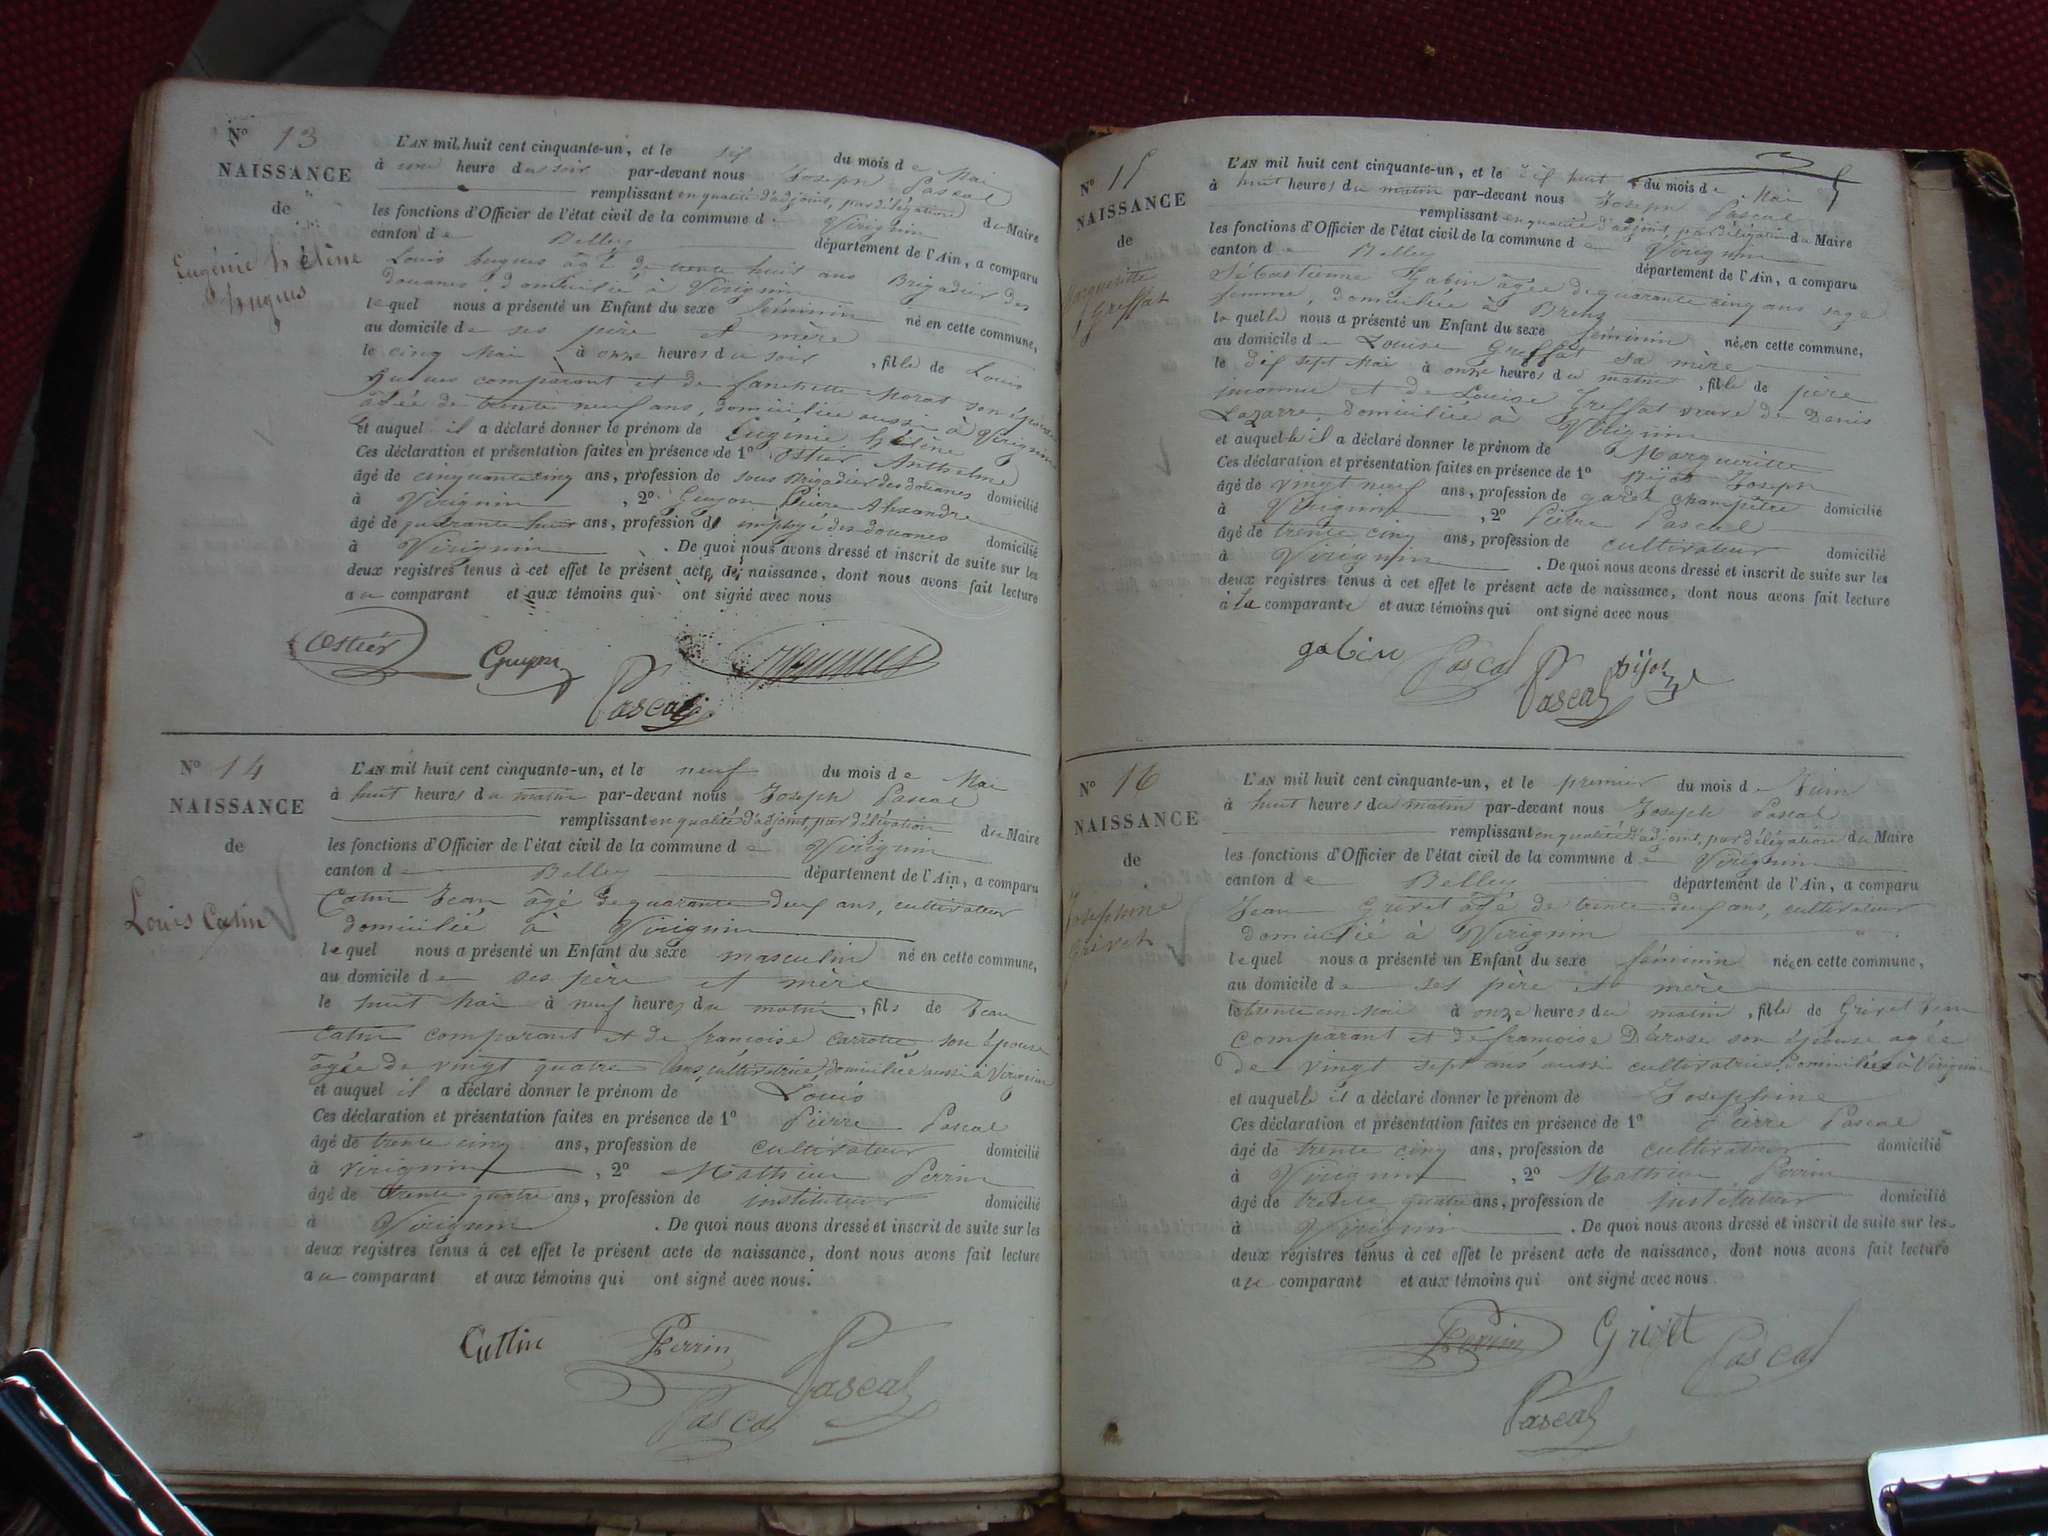 N° 13
NAISSANCE
de
Eugénie hélène
hugues
L'AN mil huit cent cinquante-un, et le six du mois de Mai
à une heure du soir par-devant nous Joseph Pascal
remplissant en qualité d'adjoint, par délégation du Maire
les fonctions d'Officier de l'état civil de la commune de Virignin
canton de Belley département de l'Ain, a comparu
Louis hugues âgé de trente huit ans Brigadier des
douanes, domicilié à Virignin
lequel nous a présenté un Enfant du sexe féminin né en cette commune,
au domicile de ses père et mère
le cinq Mai à onze heures du soir, fille de Louis
hugues comparant et de fanchette Morat son épouse
âgée de trente neuf ans, domiciliée aussi à Virignin
et auquel il a déclaré donner le prénom de Eugénie hélène
Ces déclaration et présentation faites en présence de 1° Ostier Anthelme
âgé de cinquante cinq ans, profession de sous Brigadier des douanes domicilié
à Virignin, 2° Guyon Pierre Alexandre
âgé de quarante huit ans, profession d'employé des douanes domicilié
à Virignin. De quoi nous avons dressé et inscrit de suite sur les
deux registres tenus à cet effet le présent acte de naissance, dont nous avons fait lecture
au comparant et aux témoins qui ont signé avec nous
Ostier Guyon hugues
Pascal
N° 14
NAISSANCE
de
Louis Catin
L'AN mil huit cent cinquante-un, et le neuf du mois de Mai
à huit heures du matin par-devant nous Joseph Pascal
remplissant en qualité d'adjoint, par délégation du Maire
les fonctions d'Officier de l'état civil de la commune de Virignin
canton de Belley département de l'Ain, a comparu
Catin Jean âgé de quarante deux ans, cultivateur
domicilié à Virignin
lequel nous a présenté un Enfant du sexe masculin né en cette commune,
au domicile de ses père et mère
le huit Mai à neuf heures du matin, fils de Jean
Catin comparant et de françoise carrotte son épouse
âgée de vingt quatre ans, cultivatrice, domiciliée aussi à Virignin
et auquel il a déclaré donner le prénom de Louis
Ces déclaration et présentation faites en présence de 1° Pierre Pascal
âgé de trente cinq ans, profession de cultivateur domicilié
à Virignin, 2° Mathieu Perrin
âgé de trente quatre ans, profession de instituteur domicilié
à Virignin. De quoi nous avons dressé et inscrit de suite sur les
deux registres tenus à cet effet le présent acte de naissance, dont nous avons fait lecture
au comparant et aux témoins qui ont signé avec nous.
Cattin Perrin Pascal
Pascal
N° 15
NAISSANCE
de
Marguerite
Greffat
L'AN mil huit cent cinquante-un, et le dix huit du mois de Mai
à huit heures du matin par-devant nous Joseph Pascal
remplissant en qualité d'adjoint, par délégation du Maire
les fonctions d'Officier de l'état civil de la commune de Virignin
canton de Belley département de l'Ain, a comparu
Sébastienne Gabin âgée de quarante cinq ans sage
femme, domiciliée à Brens
laquelle nous a présenté un Enfant du sexe féminin née en cette commune,
au domicile de Louise Greffat sa mère
le dix sept Mai à onze heures du matin, fille de père
inconnu et de Louise Greffat veuve de Denis
Lazarre, domiciliée à Virignin
et auquelle il a déclaré donner le prénom de Margueritte
Ces déclaration et présentation faites en présence de 1° Dijos Joseph
âgé de vingt neuf ans, profession de garde champêtre domicilié
à Virignin, 2° Pierre Pascal
âgé de trente cinq ans, profession de cultivateur domicilié
à Virignin. De quoi nous avons dressé et inscrit de suite sur les
deux registres tenus à cet effet le présent acte de naissance, dont nous avons fait lecture
à la comparante et aux témoins qui ont signé avec nous
gabin Pascal Pascal Dijos
N° 16
NAISSANCE
de
Josephine
Grivet
L'AN mil huit cent cinquante-un, et le premier du mois de Juin
à huit heures du matin par-devant nous Joseph Pascal
remplissant en qualité d'adjoint, par délégation du Maire
les fonctions d'Officier de l'état civil de la commune de Virignin
canton de Belley département de l'Ain, a comparu
Jean Grivet âgé de trente deux ans, cultivateur
domicilié à Virignin
lequel nous a présenté un Enfant du sexe féminin née en cette commune,
au domicile de ses père et mère
le trente un Mai à onze heures du matin, fille de Grivet Jean
comparant et de françoise Dérose son épouse agée
de vingt sept ans aussi cultivatrice, domiciliés à Virignin
et auquelle il a déclaré donner le prénom de Josephine
Ces déclaration et présentation faites en présence de 1° Pierre Pascal
âgé de trente cinq ans, profession de cultivateur domicilié
à Virignin, 2° Mathieu Perrin
âgé de trente quatre ans, profession de instituteur domicilié
à Virignin. De quoi nous avons dressé et inscrit de suite sur les
deux registres tenus à cet effet le présent acte de naissance, dont nous avons fait lecture
au comparant et aux témoins qui ont signé avec nous.
Perrin Grivet Pascal
Pascal